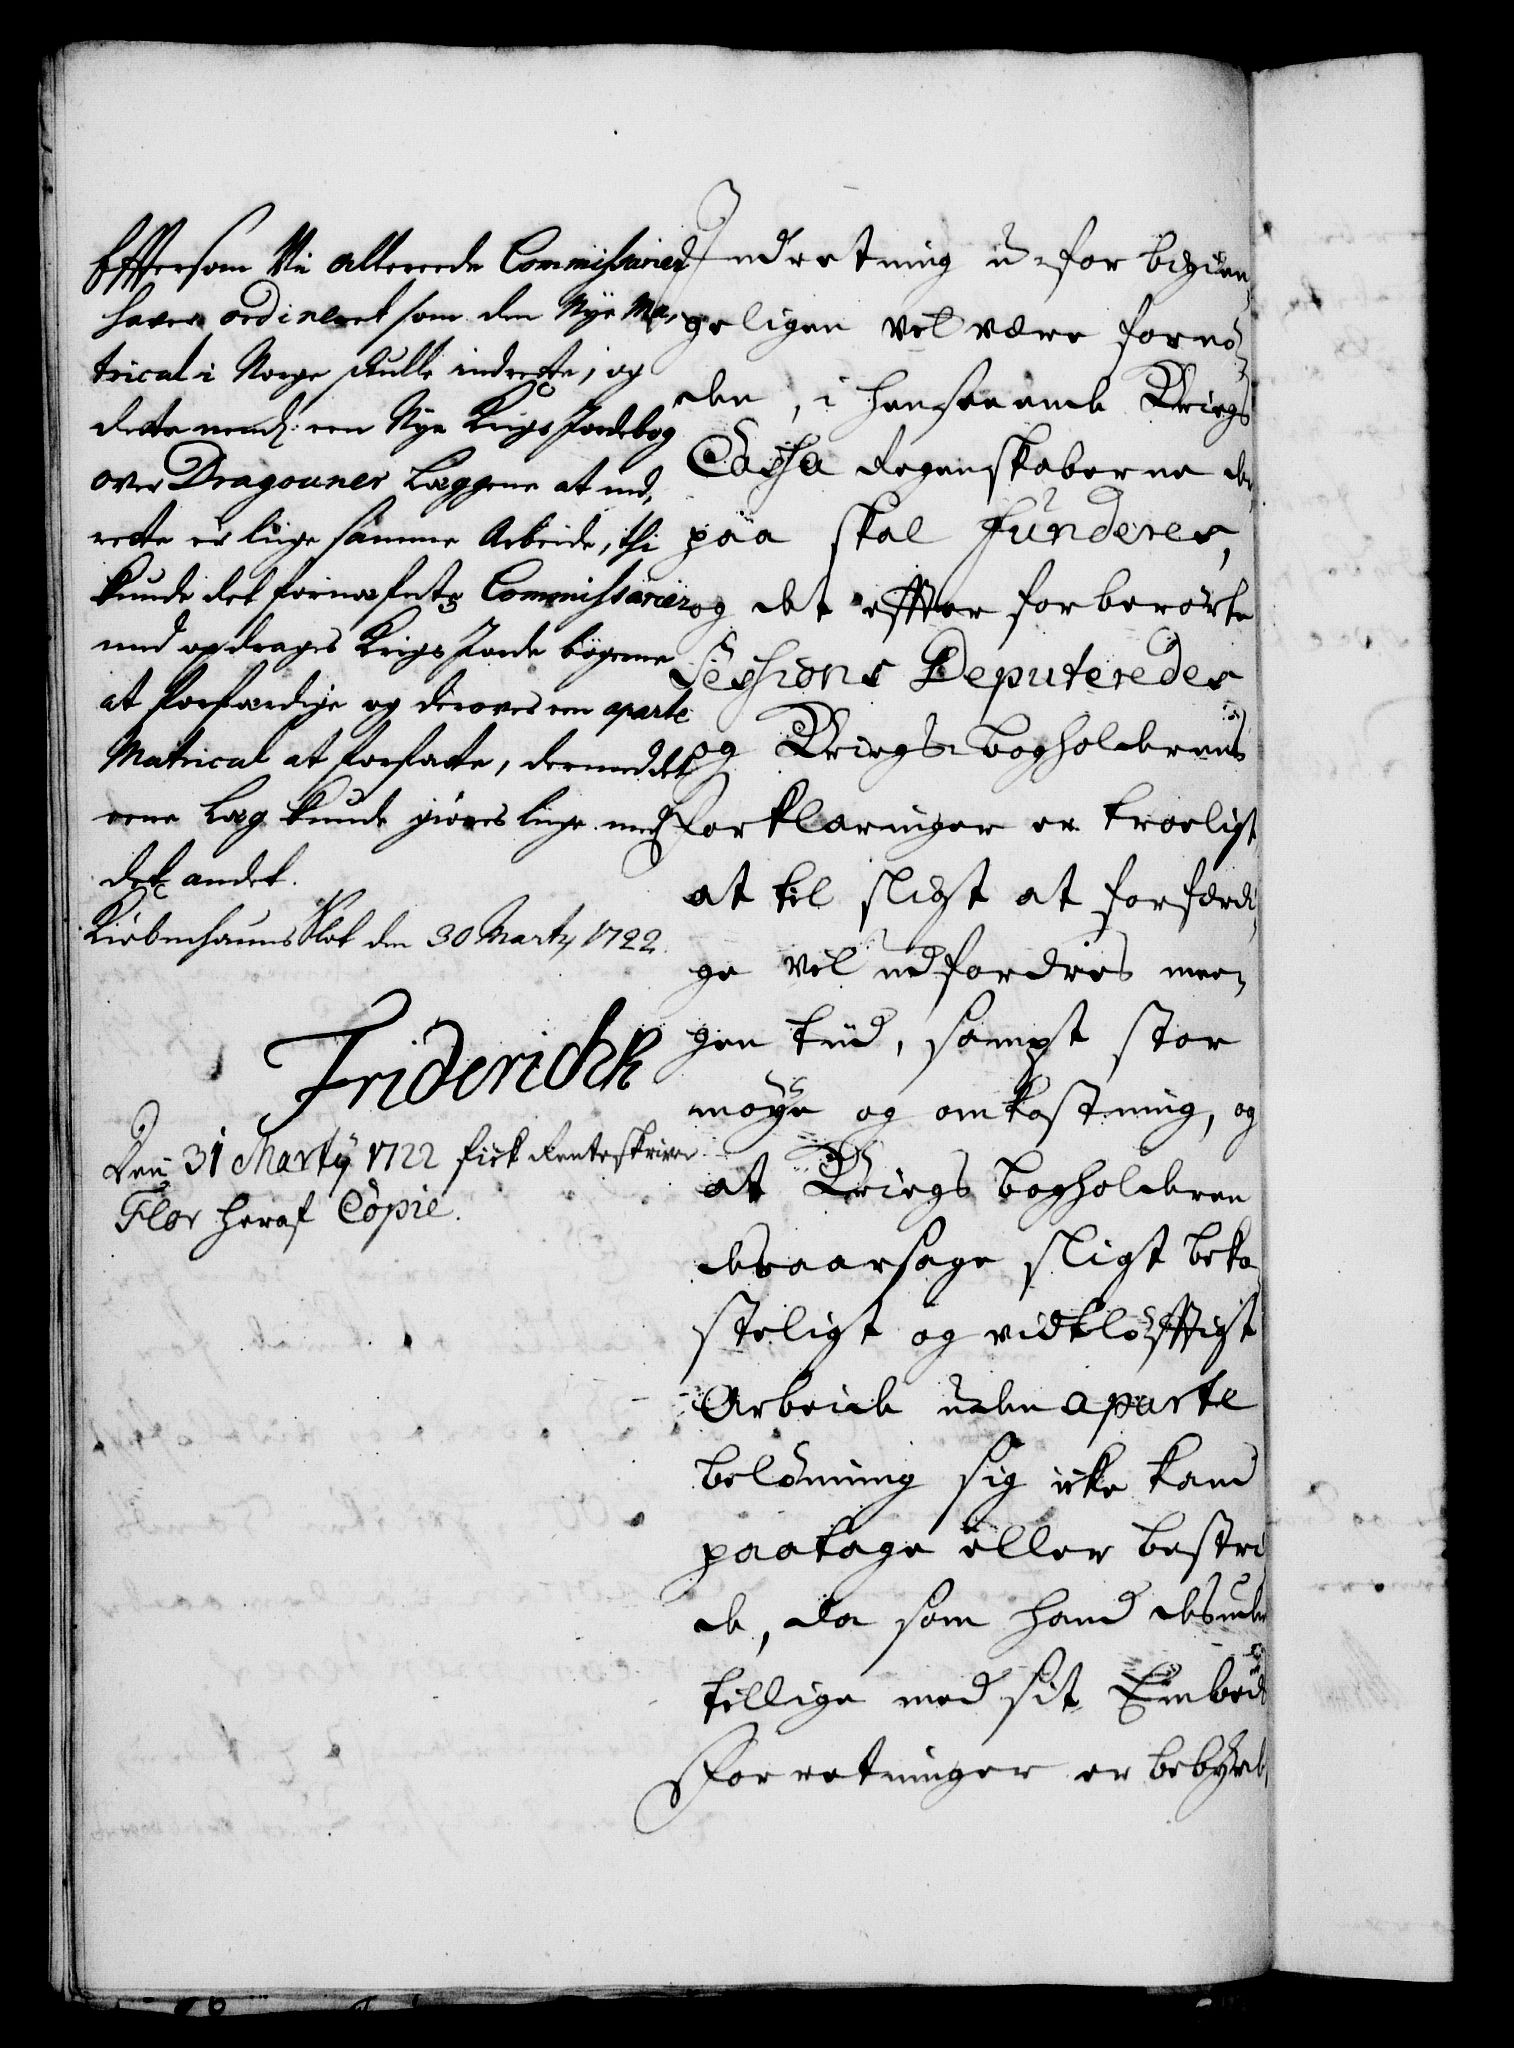 Efftersom Vi allerrede Commissarier
haver ordineret som den Nye Ma-
trical i Norge skulle indrette, og
dette nemd: een Nye Krigs Jordebog
over Dragouner Læggene at ind-
rette er liige samme Arbeide, thi
kunde det fornæfnte Commissarier
med opdrages Krigs Jorde bøgerne
at forfærdige og derover een aparte
Matrical at forfatte, dermed det
eene Læg kunde giøres liige med
det andet.
Kiøbenhauns Slot den 30 Marty 1722.
Friderich R
Den 31 Marty 1722 fick Renteskriver
Flor heraf Copie.
Indretning u-forbigien-
geligen vel være fornø-
den, i henseende Kriegs
Cassa Regenskaberne der
paa skal funderes,
og det effter forberørte
Sessions Deputeredes
og Kriegs-bogholderens
forklaringer er troeligt
at til sligt at forfærdi-
ge vel udfordres mee-
gen tiid, sampt stor
møye og omkostning, og
at Kriegs bogholderen
desaarsage sligt beko-
steligt og vidtløfftigt
Arbeide uden aparte
belønning sig icke kand
paatage eller bestri-
de, da som hand desuden
tillige med sit Embeds
Forretninger er bebyrdet,